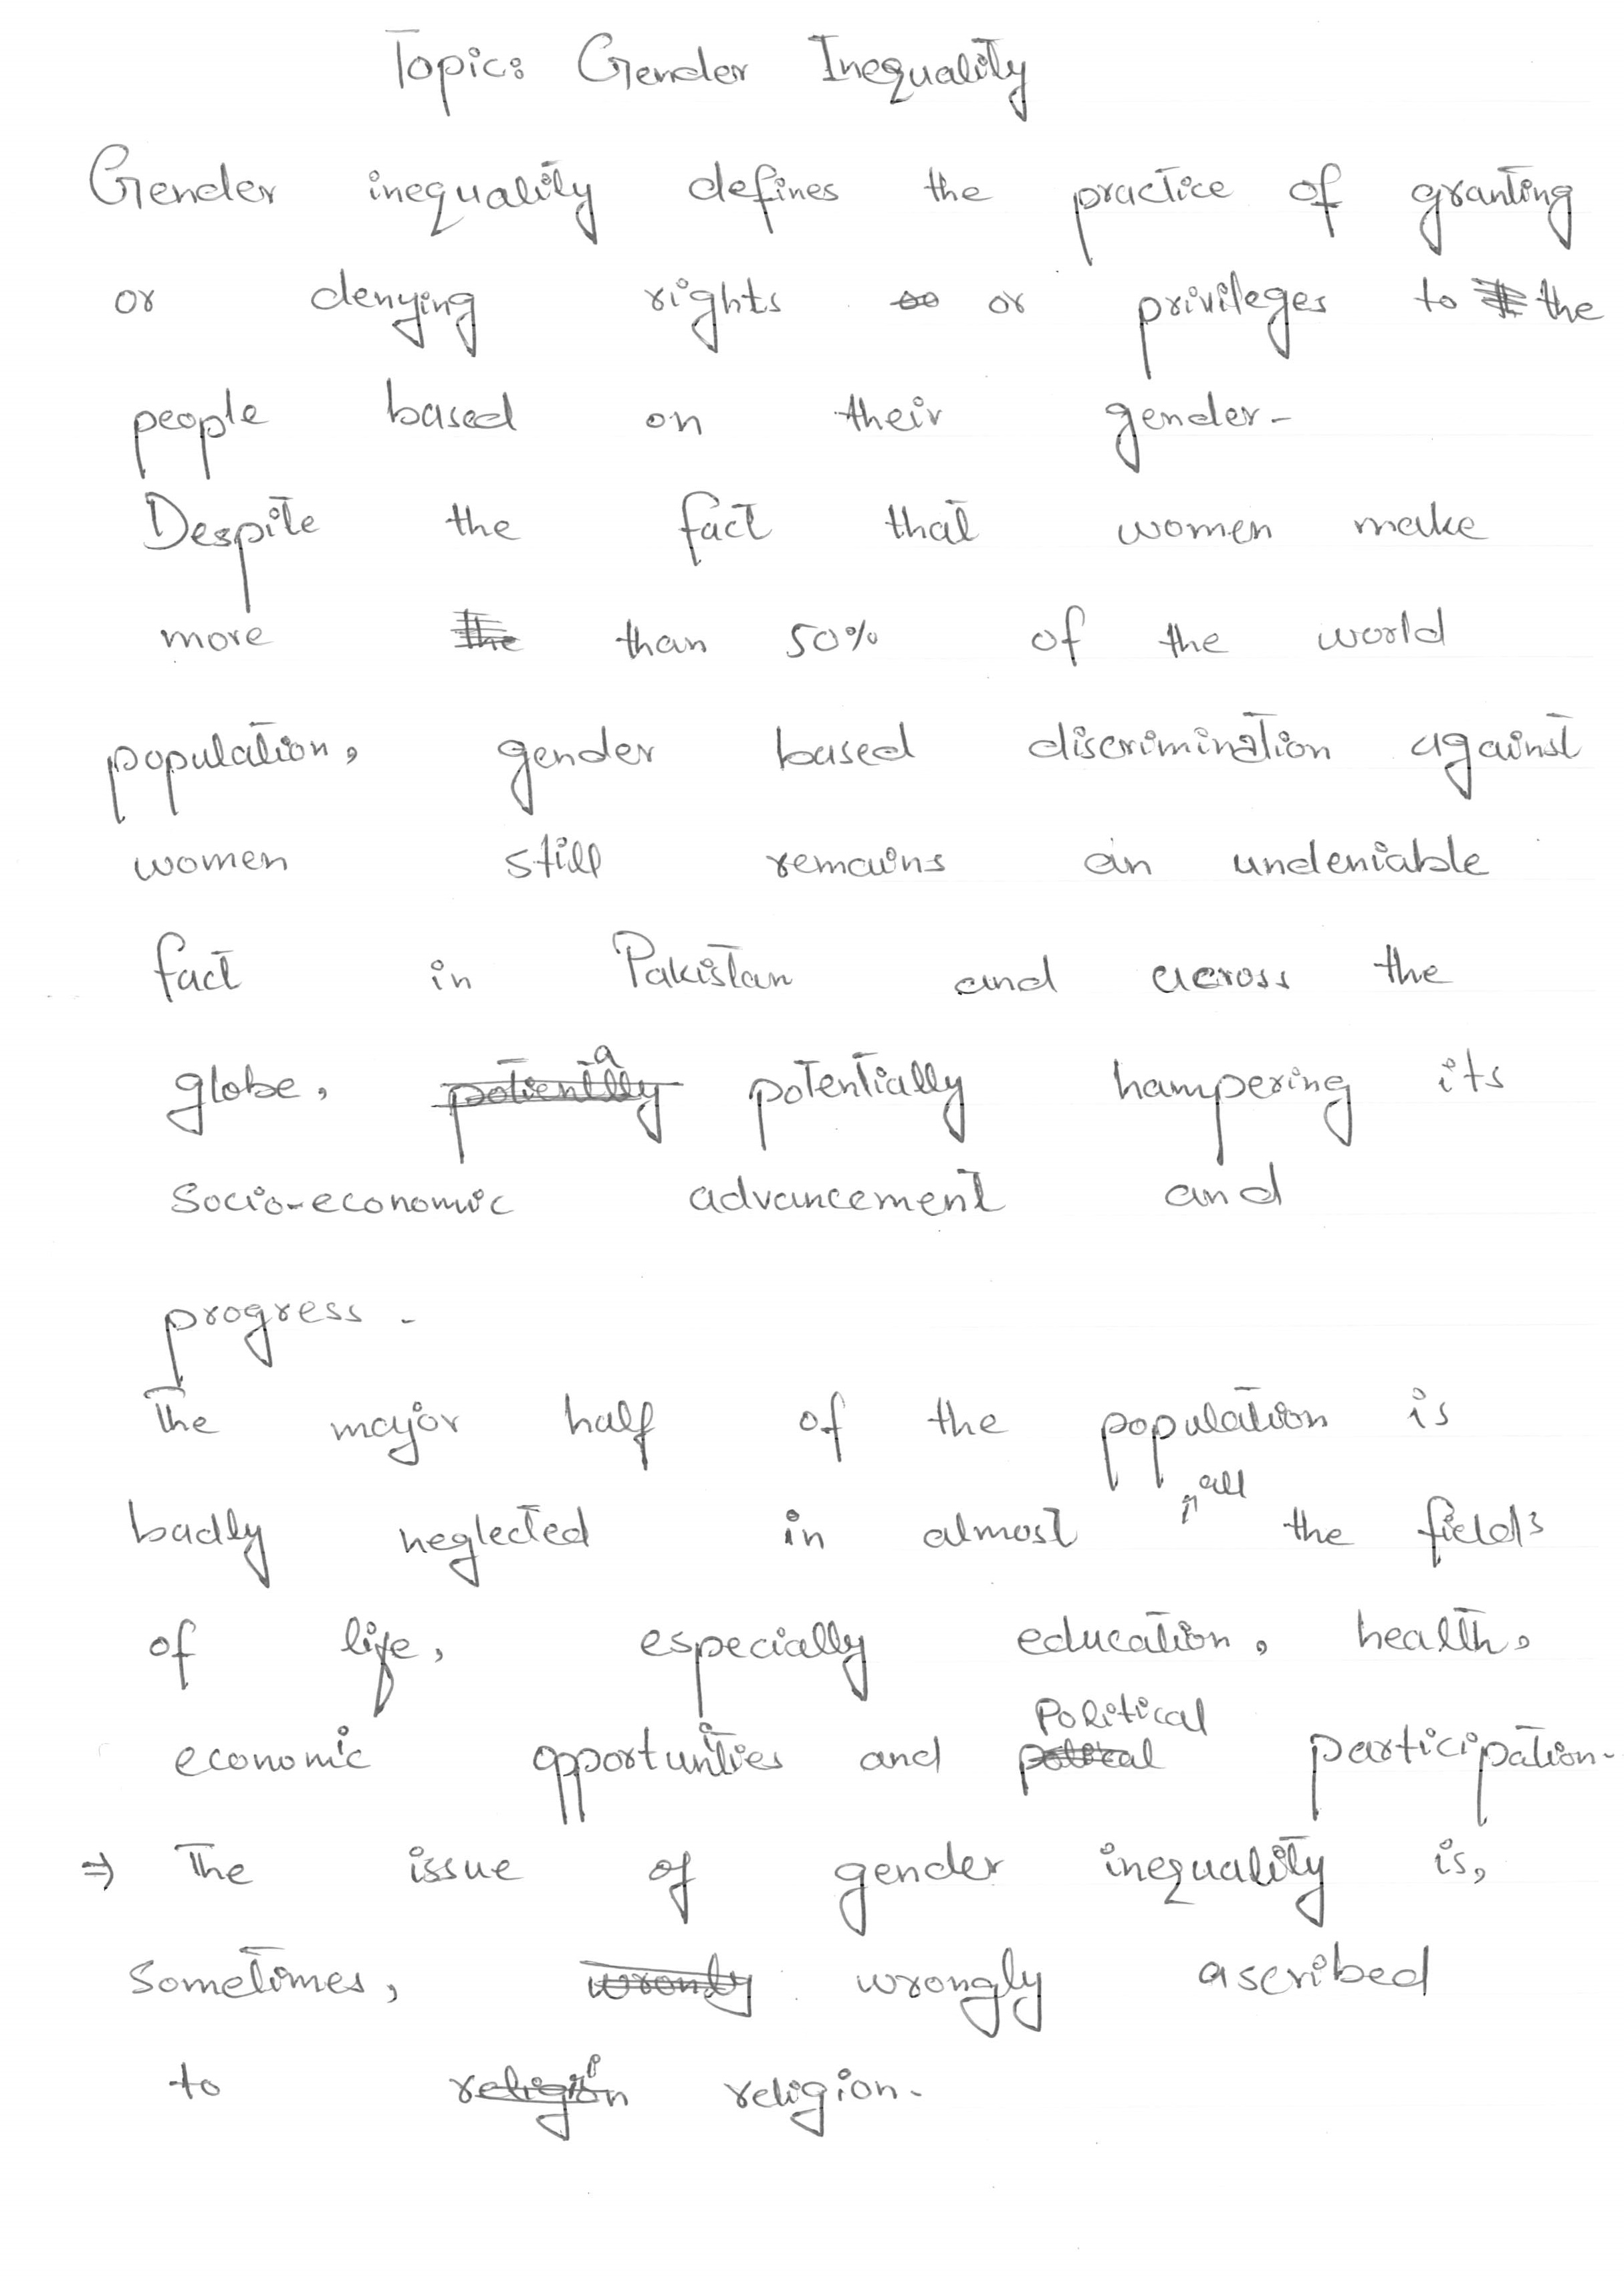 Topic: Gender Inequality
Gender inequality defines the practice of granting
or denying rights or privileges to the
people based on their gender-
Despite the fact that women make
more than 50% of the world
population, gender based discrimination against
women still remains an undeniable
fact in Pakistan and across the
globe, potentially hampering its
Socio-economic advancement and
progress -
The major half of the population is
badly neglected in almost all the fields
of life, especially education, health,
economic opportunities and Political participation-
⇒ The issue of gender inequality is,
Sometimes, wrongly ascribed
to religion-